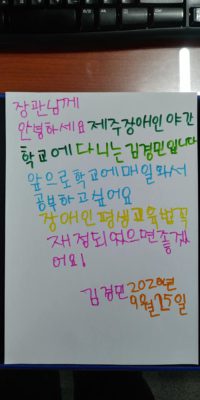 장관님께
안녕하세요 제주장애인 야간
학교에 다니는 김경민입니다
앞으로 학교에 매일 와서
공부하고 싶어요
장애인 평생교육법 꼭
재정되었으면 좋겠
어요!
김경민 2020년
9월 15일